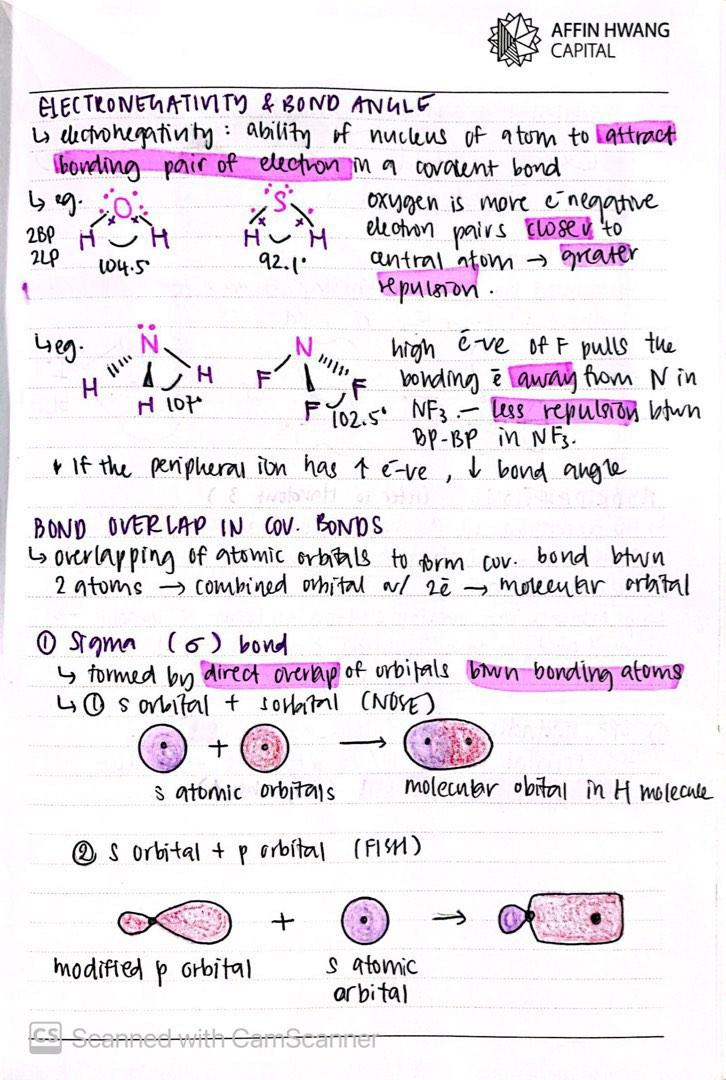 AFFIN HWANG
CAPITAL
ELECTRONEGATIVITY & BOND ANGLE
↳ electronegativity : ability of nucleus of atom to attract
bonding pair of electron in a covalent bond
↳ eg.
O
H H
2BP
2LP
104.5°
S
H H
92.1°
oxygen is more e⁻negative
electron pairs closer to
central atom → greater
repulsion.
↳ eg.
N
H H
H 107°
N
F F
F 102.5°
high ē-ve of F pulls the
bonding ē away from N in
NF₃ — less repulsion btwn
BP-BP in NF₃.
* If the peripheral ion has ↑ ē-ve , ↓ bond angle
BOND OVERLAP IN COV. BONDS
↳ overlapping of atomic orbitals to form cov. bond btwn
2 atoms → combined orbital w/ 2ē → molecular orbital
① Sigma (σ) bond
↳ formed by direct overlap of orbitals btwn bonding atoms
↳ ① s orbital + s orbital (NOSE)
+ →
s atomic orbitals
molecular obital in H molecule
② s orbital + p orbital (FISH)
+ →
modified p orbital
s atomic
orbital
CS Scanned with CamScanner